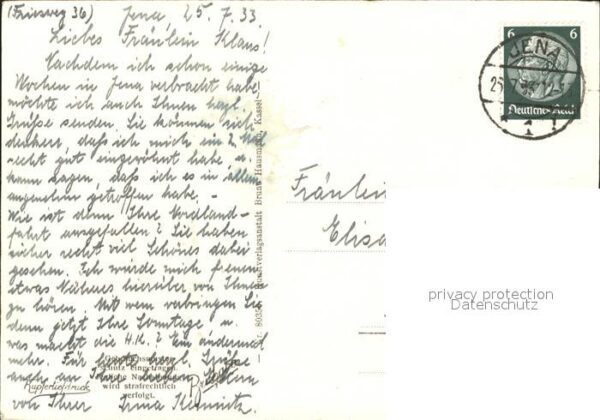 (Friesweg 36) Jena, 25.7.33.
Liebes Fräulein Klaus!
Nachdem ich schon einige
Wochen in Jena verbracht habe,
möchte ich auch Ihnen herzl.
Grüße senden. Sie können sich
denken, daß ich mich ein 2. Mal
recht gut eingewöhnt habe u.
kann sagen, daß ich es in allem
angenehm getroffen habe. –
Wie ist denn Ihre Nordland-
fahrt ausgefallen? Sie haben
sicher recht viel Schönes dabei
gesehen. Ich würde mich freuen,
etwas Näheres hierüber von Ihnen
zu hören. Mit wem verbringen Sie
denn jetzt Ihre Sonntage u.
was macht die H.K.? Ein andermal
mehr. Für heute herzl. Grüße
auch an Ihre lieben Eltern
von Ihrer Irma Kemnitz.
Kupfertiefdruck
wird strafrechtlich
verfolgt.
Kunstverlagsanstalt Bruno Hausmann, Kassel
Fräulein
Elisa
6 6
Deutsches Reich
JENA
1
privacy protection
Datenschutz